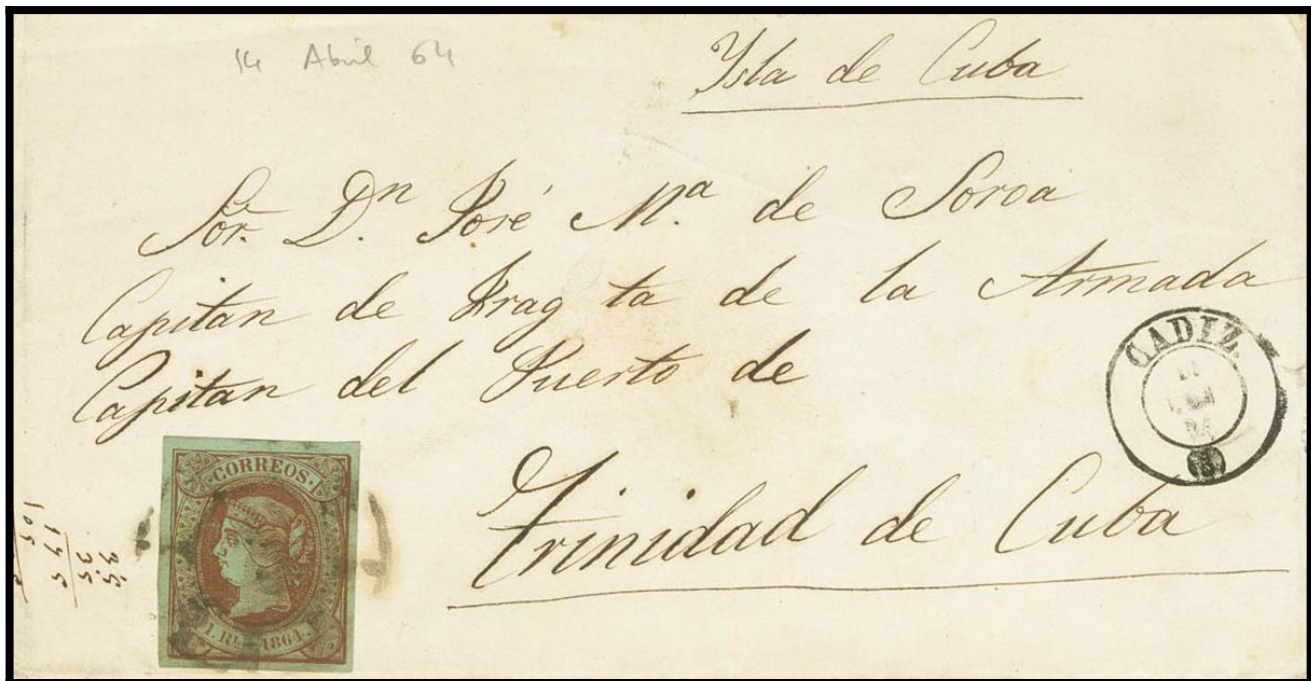 14 Abril 64
Ysla de Cuba
Sor. Dn. José Ma. de Soroa
Capitan de Frag ta de la Armada
Capitan del Puerto de
Trinidad de Cuba
CADIZ.
CORREOS.
1. RL. 1864.